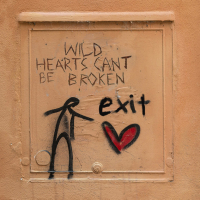 WILD
HEARTS CANT
BE BROKEN
exit